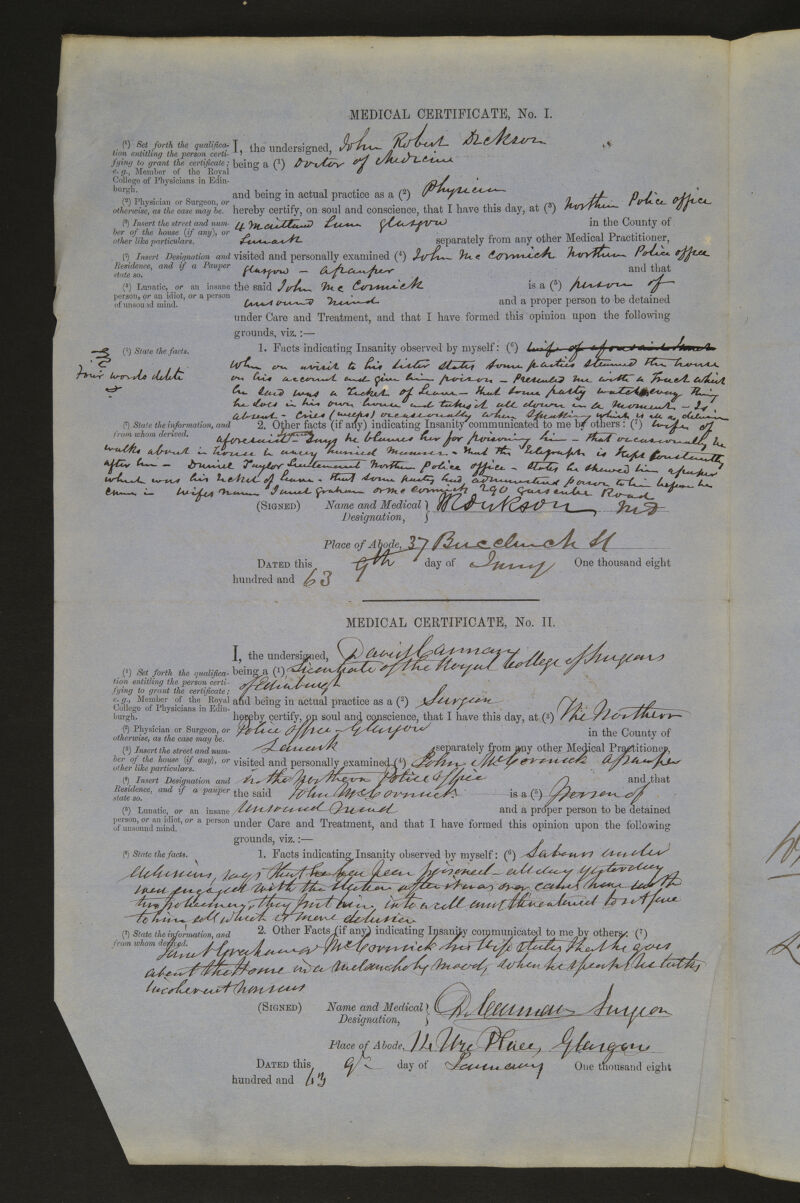 MEDICAL CERTIFICATE, No. I.
(¹) Set forth the qualifica-
tion entitling the person certi-
fying to grant the certificate;
e.g., Member of the Royal
College of Physicians in Edin-
burgh.
(²) Physician or Surgeon, or
otherwise, as the case may be.
(³) Insert the street and num-
ber of the house (if any), or
other like particulars.
(⁴) Insert Designation and
Residence, and if a Pauper
state so.
(⁵) Lunatic, or an insane
person, or an idiot, or a person
of unsound mind.
I, the undersigned, John Robert Dickson
being a (¹) Doctor of Medicine
and being in actual practice as a (²) Physician
hereby certify, on soul and conscience, that I have this day, at (³) Northern Police office
4 Maitland Glasgow in the County of
Lanark separately from any other Medical Practitioner,
visited and personally examined (⁴) John McCormick Northern Police office
Glasgow - a pauper and that
the said John McCormick is a (⁵) person of
unsound mind and a proper person to be detained
under Care and Treatment, and that I have formed this opinion upon the following
grounds, viz.:—
(⁶) State the facts.
Four words delete
1. Facts indicating Insanity observed by myself: (⁶)
When on a visit to his sister states some parties the house
on his account and give him poison - Presented me with a Tract which
he said was a Ticket of Leave - that some party every thing
he does in his own house and takes it all down in a moment - Is
absent - Cries (weeps) occasionally when speaking which is a delusion
(⁷) State the information, and
from whom derived.
2. Other facts (if any) indicating Insanity communicated to me by others: (⁷) Wife of
aforesaid - Says he blames her for poisoning him - that occasionally he
walks about in house in a very hurried manner - that the Telegraph is kept constantly
after him - Daniel Taylor Lieutenant Northern Police office - states he shewed him a paper
which was his ticket of leave - that some party had administered poison to him before he
came in wifes name Janet Graham or McCormick 290 Garscube Road
(SIGNED) Name and Medical Designation, Dickson MD
Place of Abode, 37 Buccleuch St
DATED this 9th day of One thousand eight
hundred and 63
MEDICAL CERTIFICATE, No. II.
(¹) Set forth the qualifica-
tion entitling the person certi-
fying to grant the certificate;
e.g., Member of the Royal
College of Physicians in Edin-
burgh.
(²) Physician or Surgeon, or
otherwise, as the case may be.
(³) Insert the street and num-
ber of the house (if any), or
other like particulars.
(⁴) Insert Designation and
Residence, and if a pauper
state so.
(⁵) Lunatic, or an insane
person, or an idiot, or a person
of unsound mind.
I, the undersigned, David
being a (¹) Licentiate of the Royal College of Surgeons
of Edinburgh
and being in actual practice as a (²) Surgeon
hereby certify, on soul and conscience, that I have this day, at (³) The Northern
Police Office Glasgow in the County of
Lanark separately from any other Medical Practitioner,
visited and personally examined (⁴) John McCormick a pauper
in the Northern Police Office and that
the said John McCormick is a (⁵) person of
unsound mind and a proper person to be detained
under Care and Treatment, and that I have formed this opinion upon the following
grounds, viz.:—
(⁶) State the facts.
1. Facts indicating Insanity observed by myself: (⁶) Labours under
delusions, says that he has been poisoned - all day yesterday
was engaged with the after it was over came home with
two policemen, they put him into a cell and threatened to set fire
to him all which is mere delusion
(⁷) State the information, and
from whom derived.
2. Other Facts (if any) indicating Insanity communicated to me by others: (⁷)
Janet Graham or McCormick his wife states that he goes
about the house in a melancholy mood, when he speaks he talks
incoherent nonsense
(SIGNED) Name and Medical Designation, Surgeon
Place of Abode, Place, Glasgow
DATED this 9th day of January One thousand eight
hundred and 63